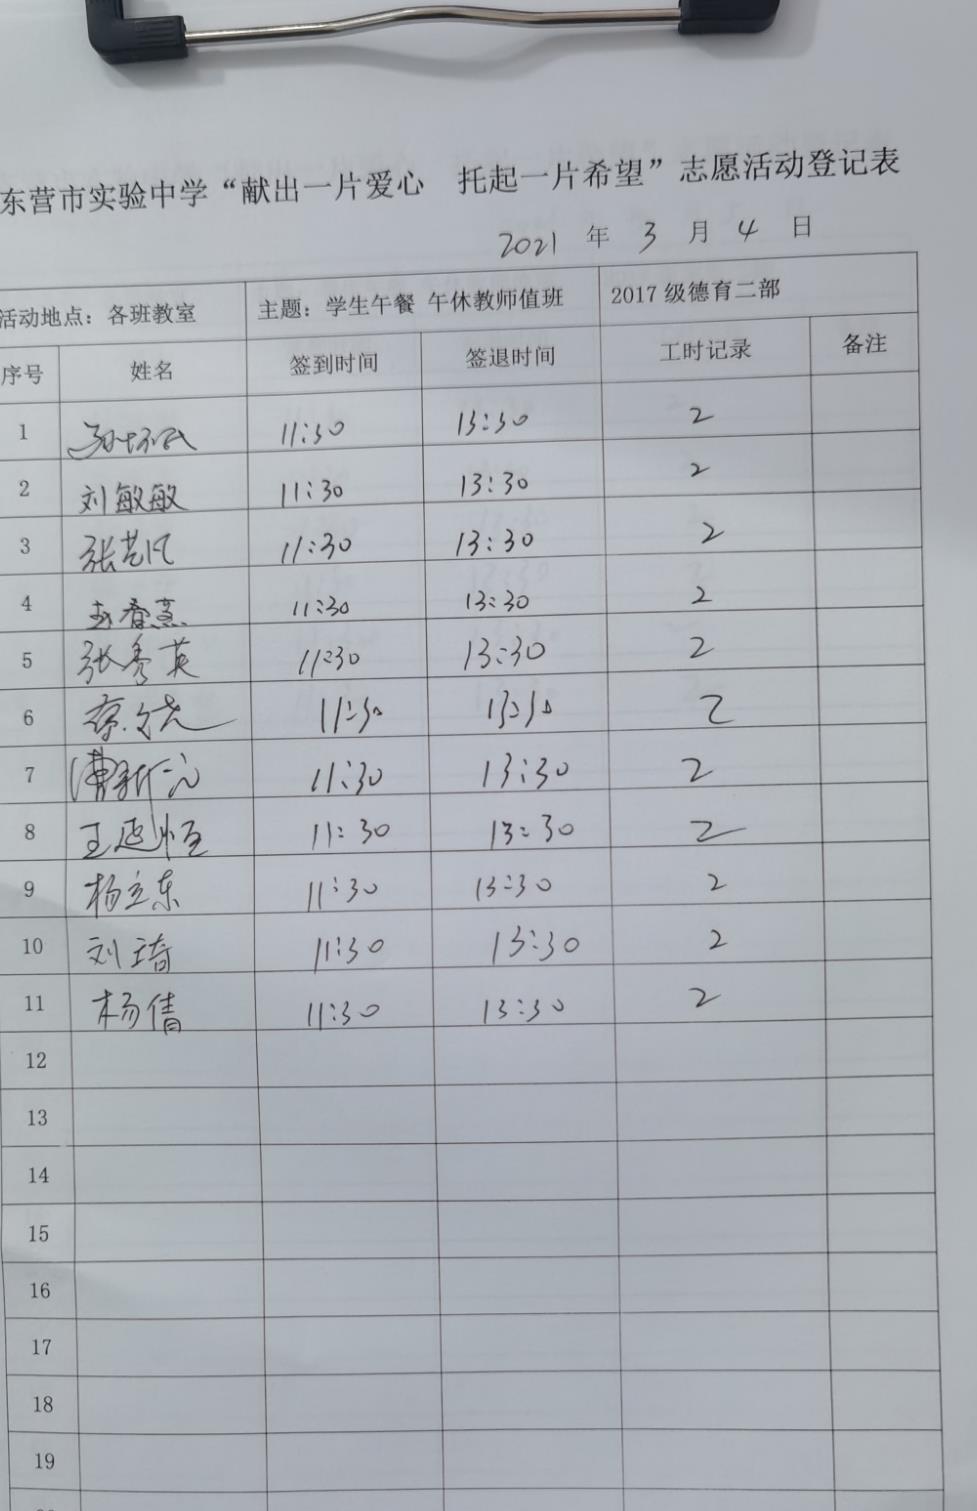 东营市实验中学“献出一片爱心 托起一片希望”志愿活动登记表
2021 年 3 月 4 日
活动地点：各班教室 主题：学生午餐 午休教师值班 2017级德育二部
序号 姓名 签到时间 签退时间 工时记录 备注
1 11:30 13:30 2
2 刘敏敏 11:30 13:30 2
3 张艺凡 11:30 13:30 2
4 赵春燕 11:30 13:30 2
5 张秀英 11:30 13:30 2
6 11:30 13:30 2
7 11:30 13:30 2
8 王延恒 11:30 13:30 2
9 杨立东 11:30 13:30 2
10 刘琦 11:30 13:30 2
11 杨倩 11:30 13:30 2
12
13
14
15
16
17
18
19